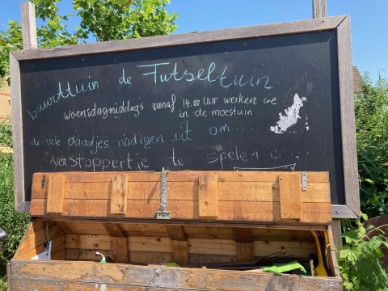 buurttuin de Futseltuin
woensdagmiddags vanaf 14.00 uur werken we
in de moestuin
de vele plaatjes nodigen uit om ...
... Stoppertje te spelen ...